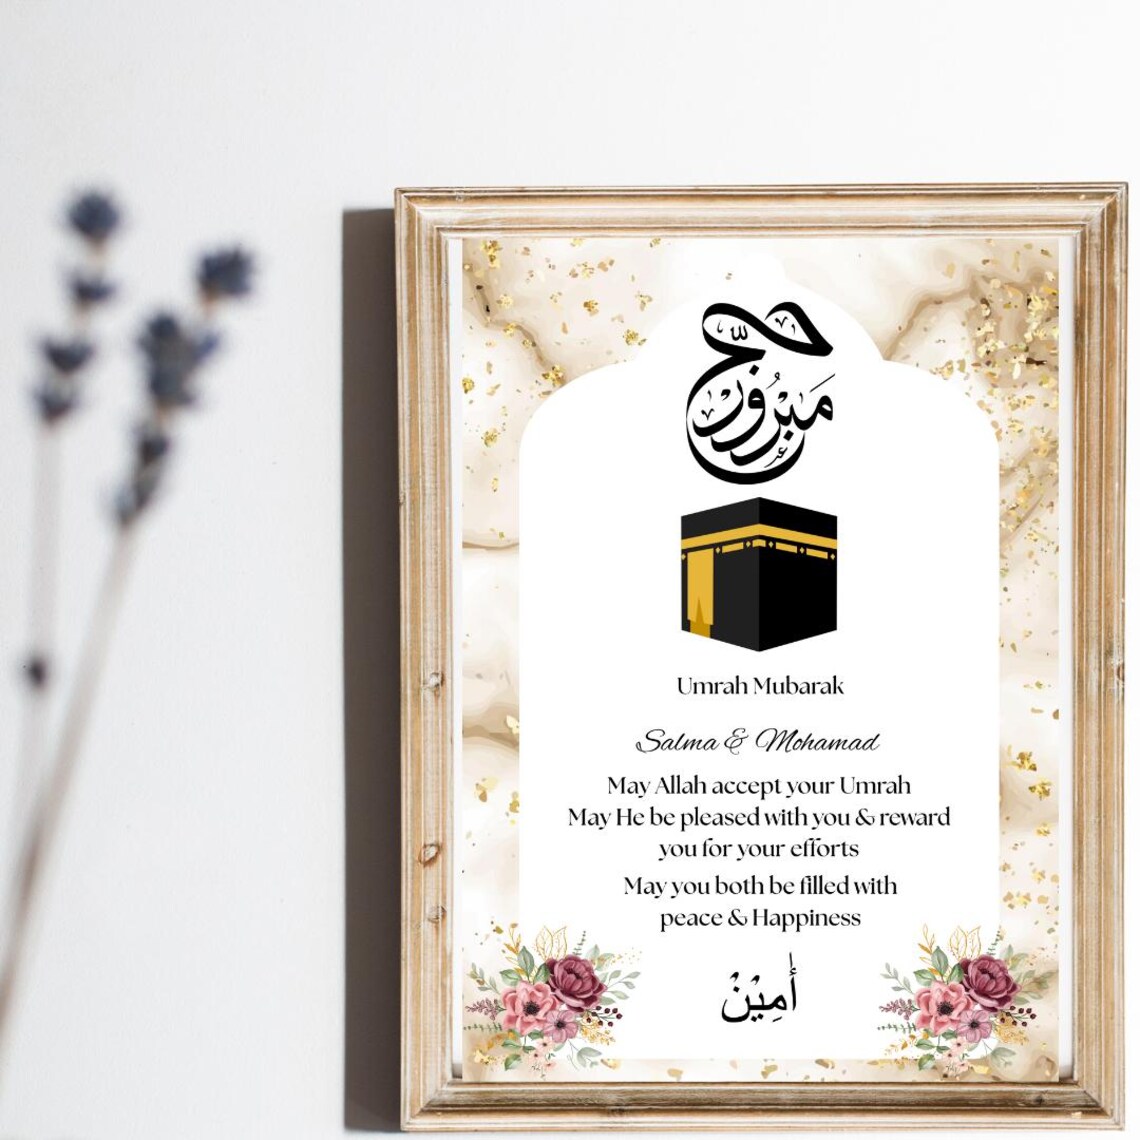 حج
مبرور
Umrah Mubarak
Salma & Mohamad
May Allah accept your Umrah
May He be pleased with you & reward
you for your efforts
May you both be filled with
peace & Happiness
أٰمِيْنْ